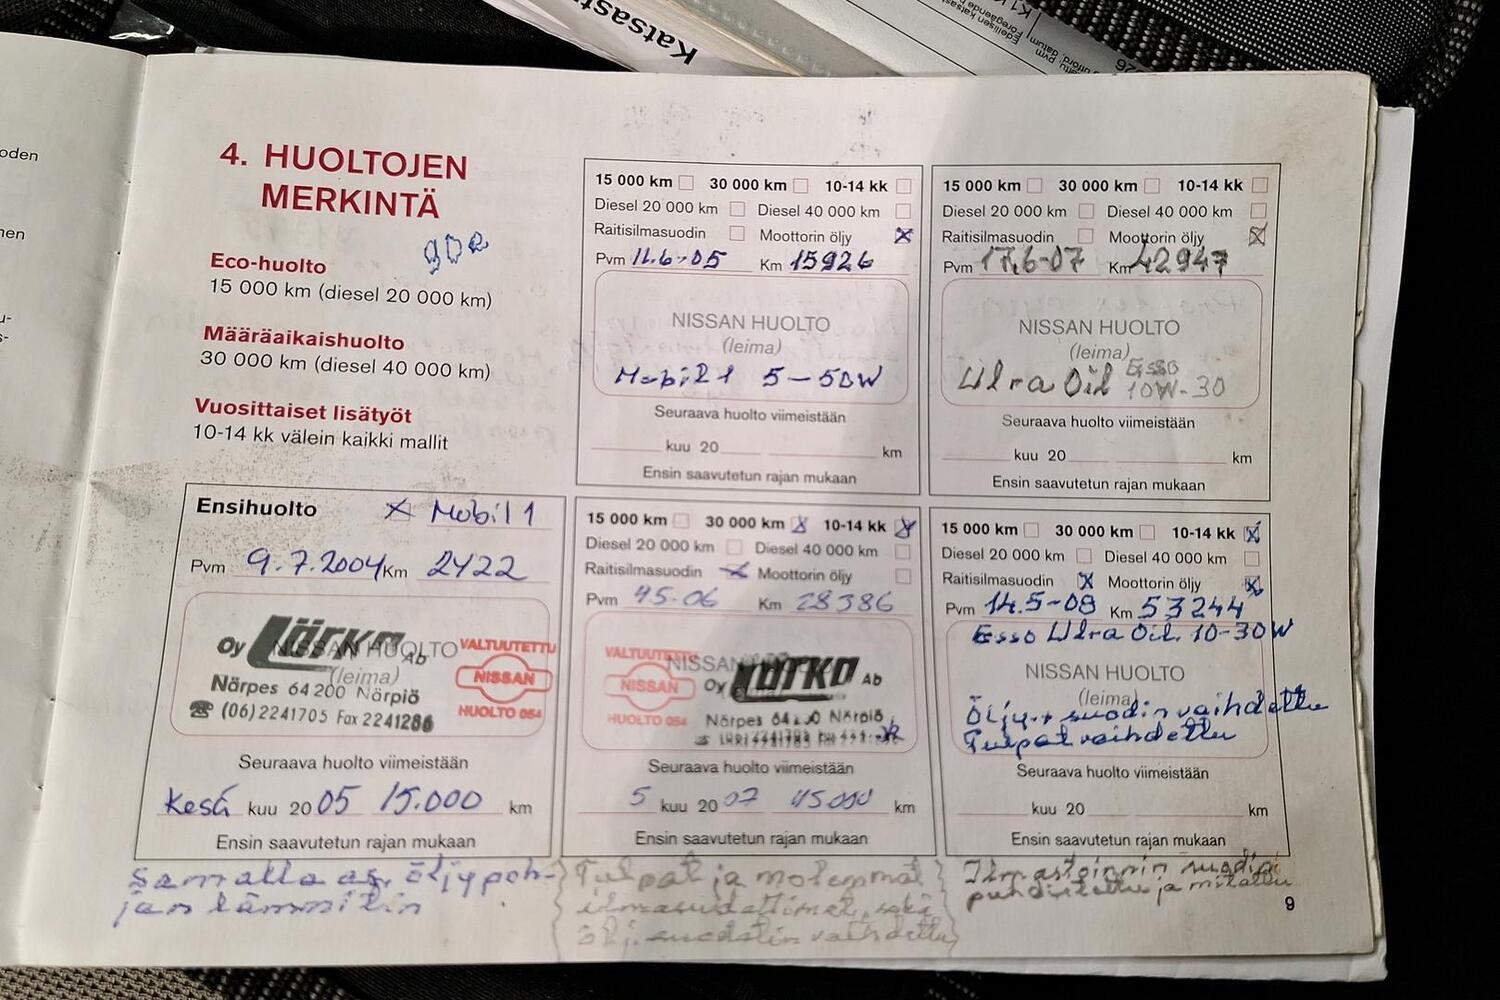 Katsast
Edellisen katsast
Föregående b
K1
oden
nen
u-
s-
4. HUOLTOJEN
MERKINTÄ
Eco-huolto
15 000 km (diesel 20 000 km)
Määräaikaishuolto
30 000 km (diesel 40 000 km)
Vuosittaiset lisätyöt
10-14 kk välein kaikki mallit
15 000 km 30 000 km 10-14 kk
Diesel 20 000 km Diesel 40 000 km
Raitisilmasuodin Moottorin öljy X
Pvm 11.6-05 Km 15926
NISSAN HUOLTO
(leima)
Mobil 1 5-50W
Seuraava huolto viimeistään
kuu 20 km
Ensin saavutetun rajan mukaan
15 000 km 30 000 km 10-14 kk
Diesel 20 000 km Diesel 40 000 km
Raitisilmasuodin Moottorin öljy X
Pvm 17.6-07 Km 42947
NISSAN HUOLTO
(leima)
Ulra Oil Esso 10W-30
Seuraava huolto viimeistään
kuu 20 km
Ensin saavutetun rajan mukaan
Ensihuolto X Mobil 1
Pvm 9.7.2004 Km 2422
NISSAN HUOLTO
(leima)
Oy Lärka Ab
Närpes 64200 Närpiö
☎ (06) 2241705 Fax 2241286
VALTUUTETTU
NISSAN
HUOLTO 054
Seuraava huolto viimeistään
Kesä kuu 20 05 15.000 km
Ensin saavutetun rajan mukaan
Samalla as. öljypoh-
jan lämmitin
15 000 km 30 000 km X 10-14 kk X
Diesel 20 000 km Diesel 40 000 km
Raitisilmasuodin X Moottorin öljy
Pvm 45-06 Km 28386
VALTUUTETTU
NISSAN
HUOLTO 054
NISSAN
Oy Ab
Närpes 64200 Närpiö
Seuraava huolto viimeistään
5 kuu 20 07 45.000 km
Ensin saavutetun rajan mukaan
Tulpat ja molemmat
ilmasuodattimet, sekä
ölj. suodatin vaihdettu
15 000 km 30 000 km 10-14 kk X
Diesel 20 000 km Diesel 40 000 km
Raitisilmasuodin X Moottorin öljy X
Pvm 14.5-08 Km 53244
Esso Ulra Oil 10-30W
NISSAN HUOLTO
(leima)
Öljy + suodin vaihdettu
Tulpat vaihdettu
Seuraava huolto viimeistään
kuu 20 km
Ensin saavutetun rajan mukaan
Ilmastoinnin suodin
puhdistettu ja mitattu
9